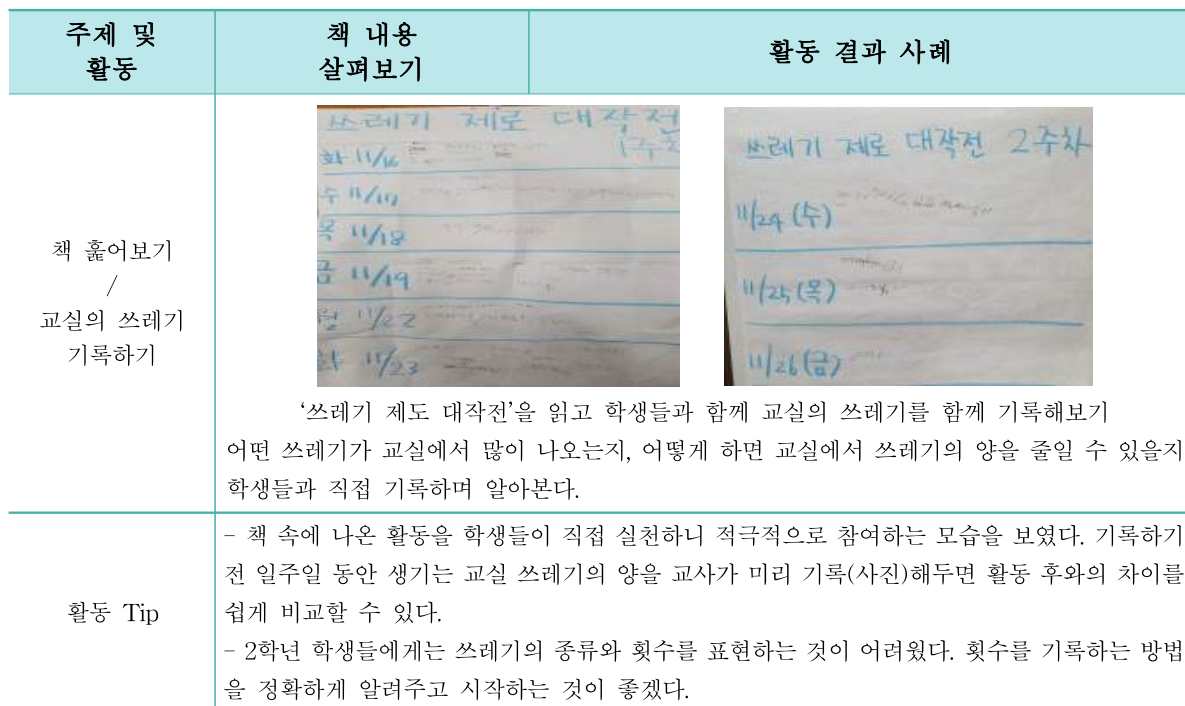 주제 및
활동
책 내용
살펴보기
활동 결과 사례
책 훑어보기
/
교실의 쓰레기
기록하기
쓰레기 제로 대작전
1주차
화 11/16
수 11/17
목 11/18
금 11/19
월 11/22
화 11/23
쓰레기 제로 대작전 2주차
11/24 (수)
11/25 (목)
11/26 (금)
‘쓰레기 제도 대작전’을 읽고 학생들과 함께 교실의 쓰레기를 함께 기록해보기
어떤 쓰레기가 교실에서 많이 나오는지, 어떻게 하면 교실에서 쓰레기의 양을 줄일 수 있을지
학생들과 직접 기록하며 알아본다.
활동 Tip
- 책 속에 나온 활동을 학생들이 직접 실천하니 적극적으로 참여하는 모습을 보였다. 기록하기
전 일주일 동안 생기는 교실 쓰레기의 양을 교사가 미리 기록(사진)해두면 활동 후와의 차이를
쉽게 비교할 수 있다.
- 2학년 학생들에게는 쓰레기의 종류와 횟수를 표현하는 것이 어려웠다. 횟수를 기록하는 방법
을 정확하게 알려주고 시작하는 것이 좋겠다.